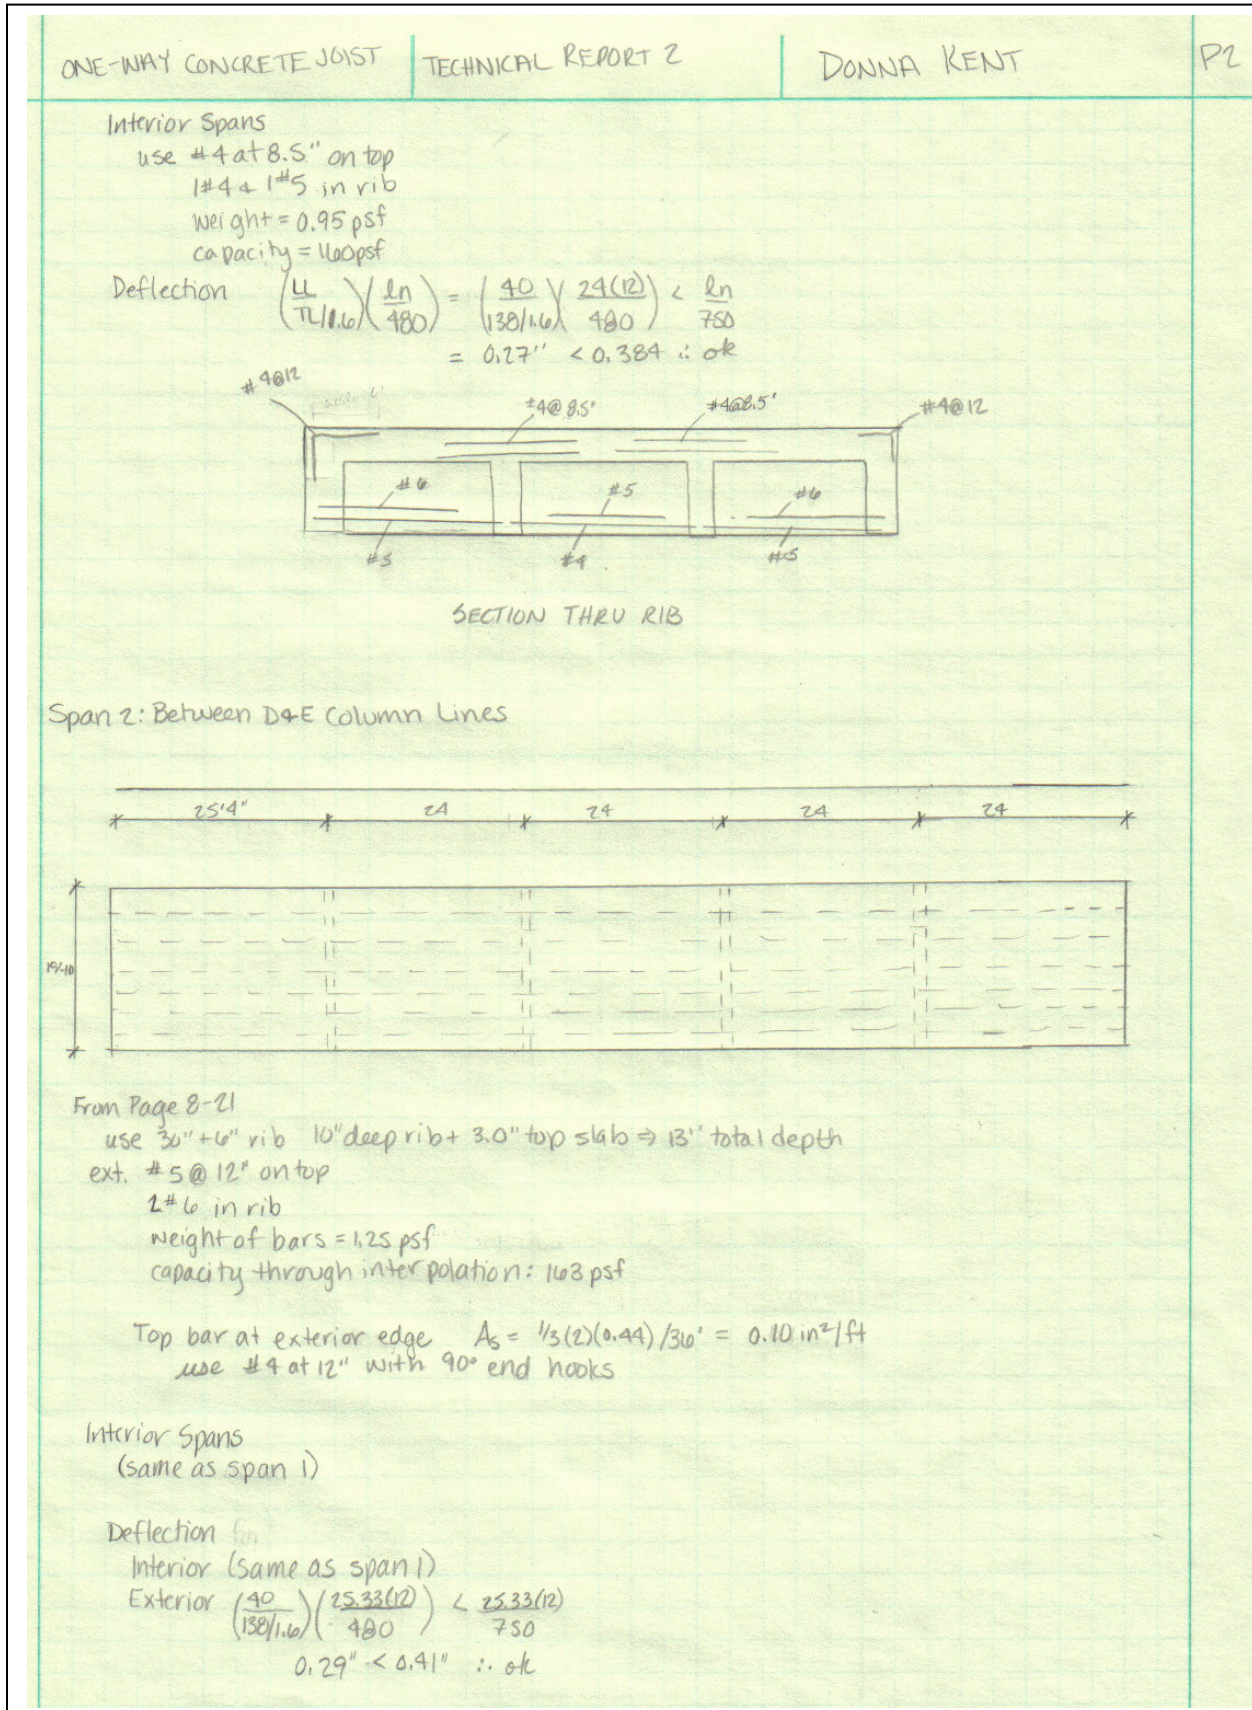 ONE-WAY CONCRETE JOIST TECHNICAL REPORT 2 DONNA KENT P2
Interior Spans
use #4 at 8.5" on top
1#4 & 1#5 in rib
weight = 0.95 psf
capacity = 160psf
Deflection (LL / TL/1.6)(ln / 480) = (40 / 138/1.6)(24(12) / 480) < ln / 750
= 0.27" < 0.384 ∴ ok
#4@12 #4@8.5" #4@8.5" #4@12
#6 #5 #6
#5 #4 #5
SECTION THRU RIB
Span 2: Between D&E Column Lines
25'4" 24 24 24 24
From Page 8-21
use 30"+6" rib 10" deep rib + 3.0" top slab ⇒ 13" total depth
ext. #5 @ 12" on top
2#6 in rib
weight of bars = 1.25 psf
capacity through interpolation: 163 psf
Top bar at exterior edge As = 1/3(2)(0.44)/36' = 0.10 in²/ft
use #4 at 12" with 90° end hooks
Interior Spans
(same as span 1)
Deflection
Interior (same as span 1)
Exterior (40 / 138/1.6)(25.33(12) / 480) < 25.33(12) / 750
0.29" < 0.41" ∴ ok